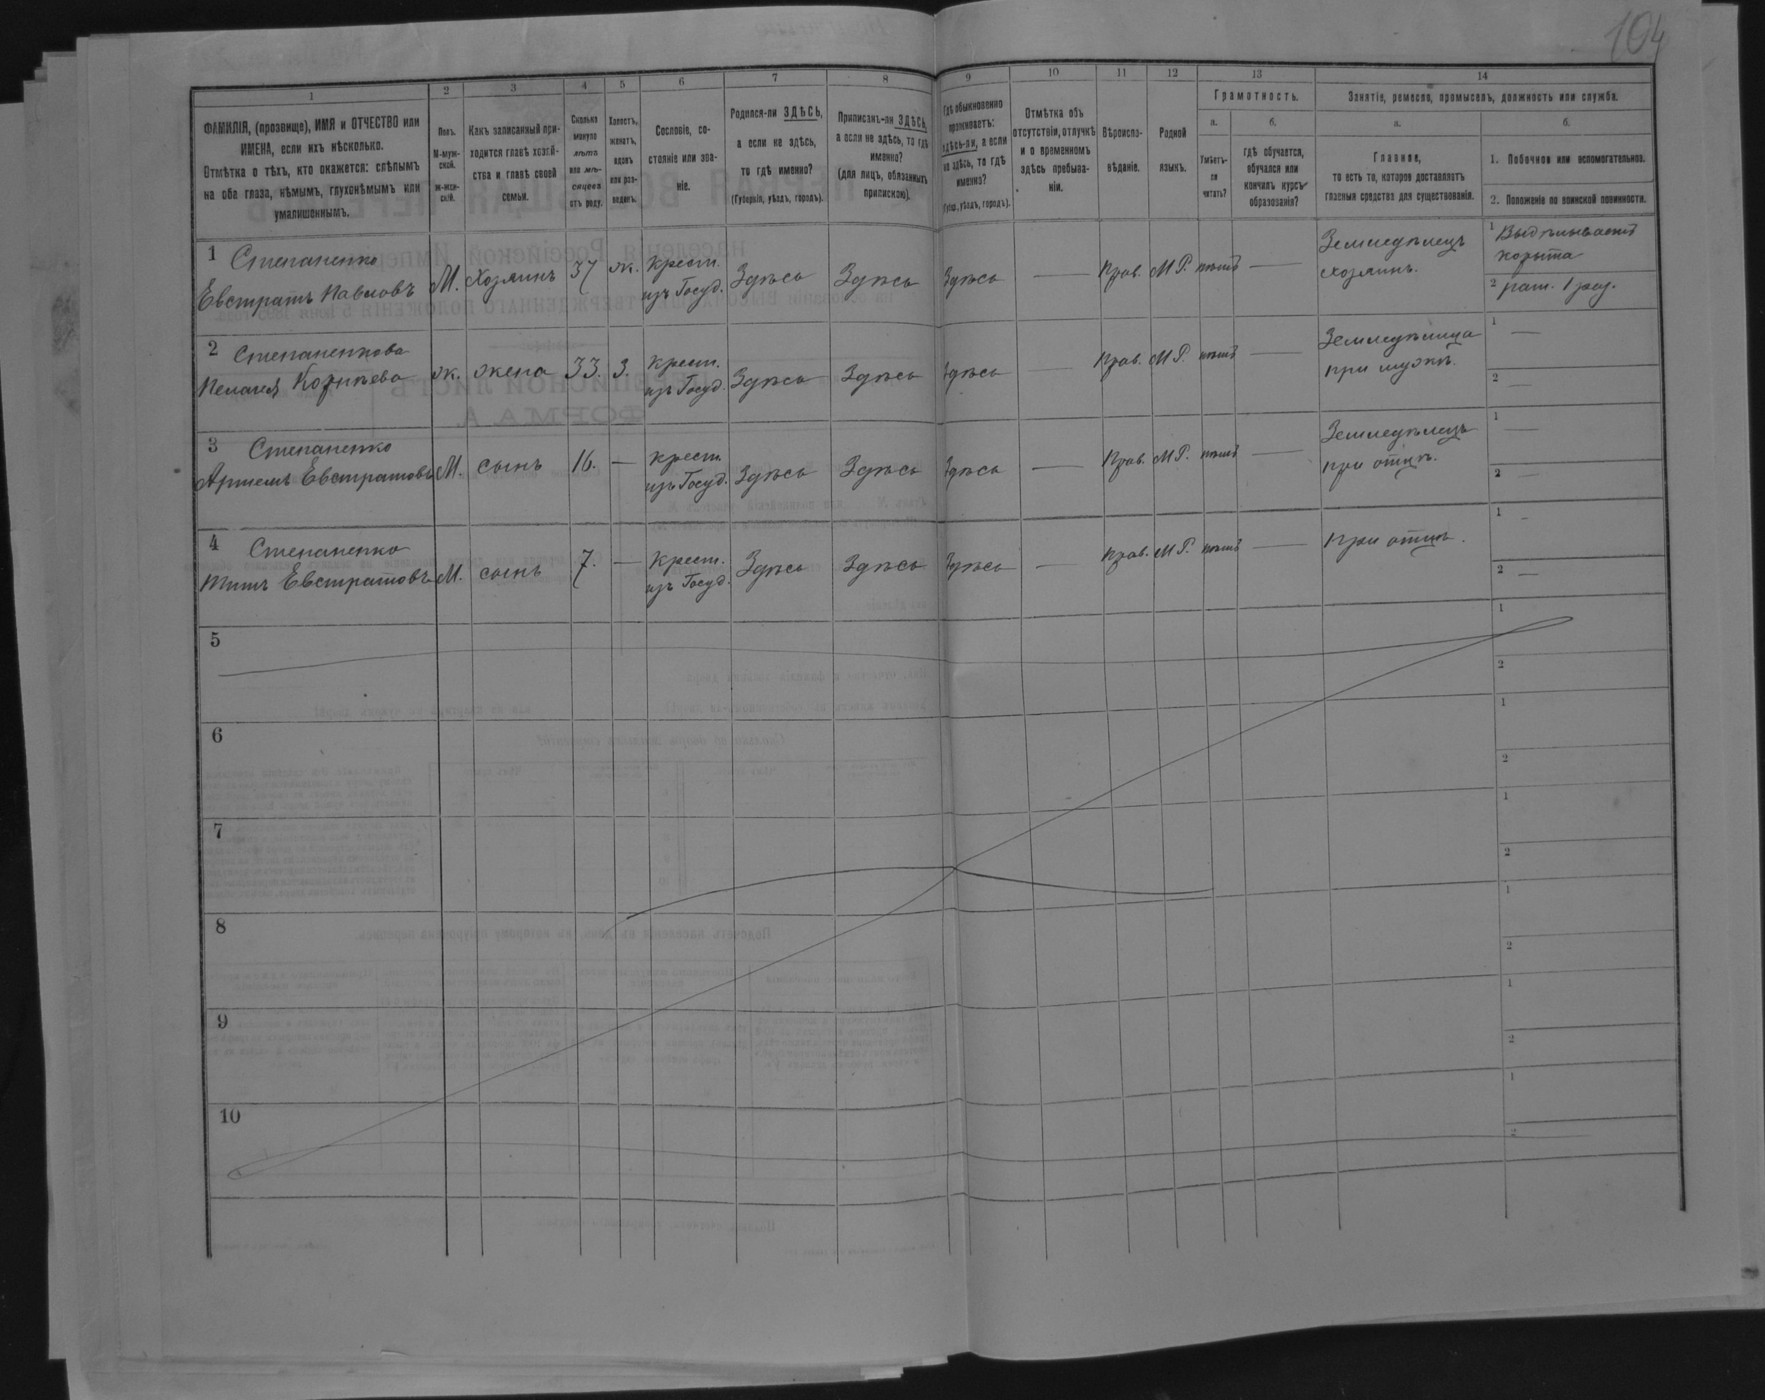 104
1
2
3
4
5
6
7
8
9
10
11
12
13
14
ФАМИЛІЯ, (прозвище), ИМЯ и ОТЧЕСТВО или
ИМЕНА, если ихъ нѣсколько.
Отмѣтка о тѣхъ, кто окажется: слѣпымъ
на оба глаза, нѣмымъ, глухонѣмымъ или
умалишеннымъ.
Полъ.
М-муж-
ской.
ж-жен-
скій.
Какъ записанный при-
ходится главѣ хозяй-
ства и главѣ своей
семьи.
Сколько
минуло
лѣтъ
или мѣ-
сяцевъ
отъ роду.
Холостъ,
женатъ,
вдовъ
или раз-
веденъ.
Сословіе, со-
стояніе или зва-
ніе.
Родился-ли ЗДѢСЬ,
а если не здѣсь,
то гдѣ именно?
(Губернія, уѣздъ, городъ).
Приписанъ-ли ЗДѢСЬ,
а если не здѣсь, то гдѣ
именно?
(для лицъ, обязанныхъ
припискою).
Гдѣ обыкновенно
проживаетъ:
здѣсь-ли, а если
не здѣсь, то гдѣ
именно?
(Губер., уѣздъ, городъ).
Отмѣтка объ
отсутствіи, отлучкѣ
и о временномъ
здѣсь пребыва-
ніи.
Вѣроиспо-
вѣданіе.
Родной
языкъ.
Грамотность.
а.
б.
Умѣетъ-
ли
читать?
гдѣ обучается,
обучался или
кончилъ курсъ
образованія?
Занятіе, ремесло, промыселъ, должность или служба.
а.
б.
Главное,
то есть то, которое доставляетъ
главныя средства для существованія.
1. Побочное или вспомогательное.
2. Положеніе по воинской повинности.
1 Степаненко
Евстратъ Павловъ М. Хозяинъ 37 ж. крест. изъ Госуд. Здѣсь Здѣсь Здѣсь — Прав. М.Р. нѣтъ — Земледѣлецъ хозяинъ. 1 Выдѣлываетъ корыта 2 рат. 1 раз.
2 Степаненкова
Пелагея Корнѣева ж. жена 33. З. крест. изъ Госуд. Здѣсь Здѣсь Здѣсь — Прав. М.Р. нѣтъ — Земледѣлица при мужѣ. 1 — 2 —
3 Степаненко
Артемъ Евстратовъ М. сынъ 16. — крест. изъ Госуд. Здѣсь Здѣсь Здѣсь — Прав. М.Р. нѣтъ — Земледѣлецъ при отцѣ. 1 — 2 —
4 Степаненко
Титъ Евстратовъ М. сынъ 7. — Крест. изъ Госуд. Здѣсь Здѣсь Здѣсь — Прав. М.Р. нѣтъ — при отцѣ. 1 — 2 —
5 1 2
6 1 2
7 1 2
8 1 2
9 1 2
10 1 2